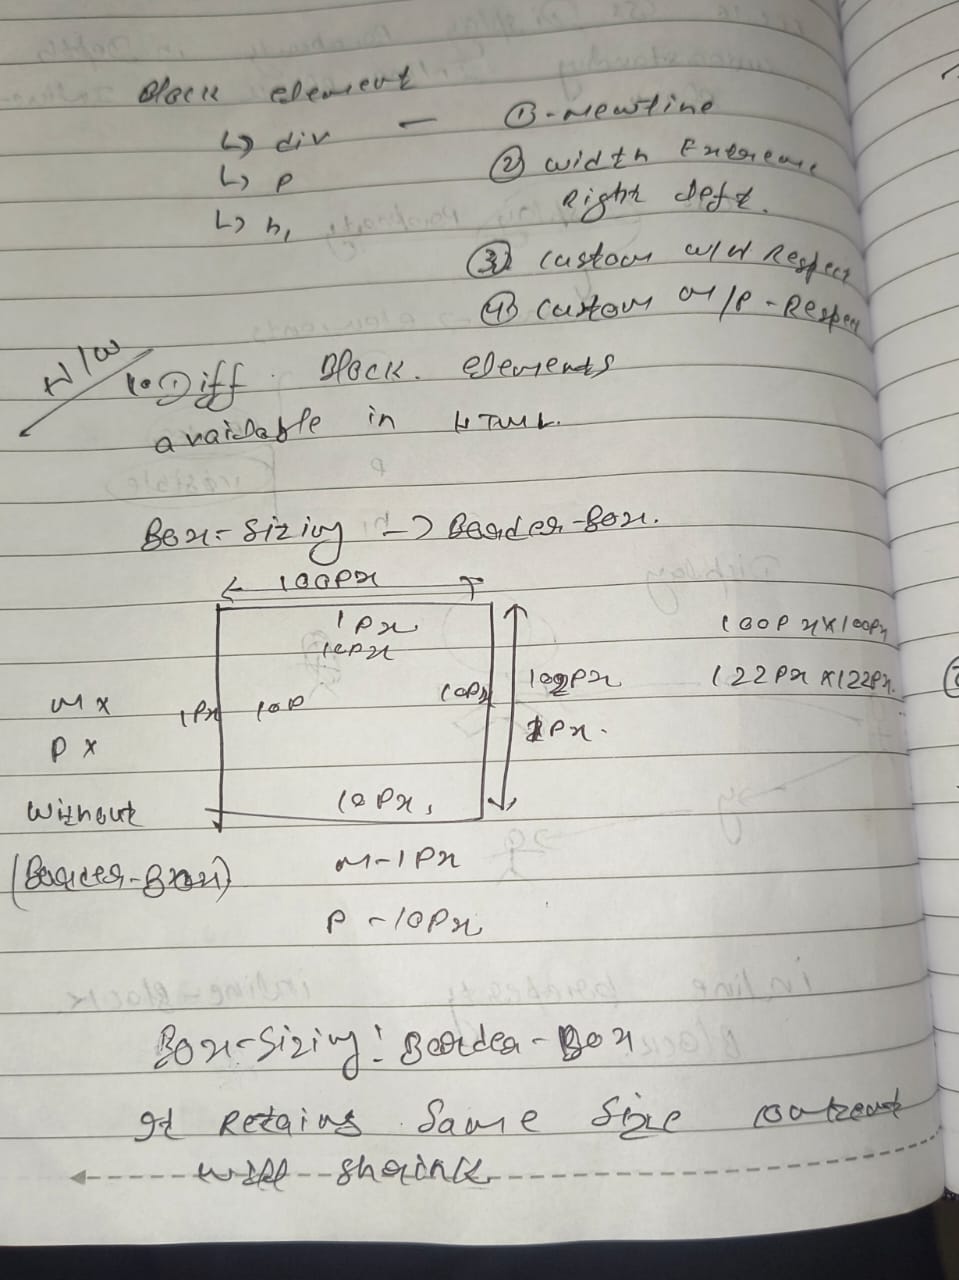 Block element
↳ div - ① - newline
↳ p ② width Extreme
Right left.
↳ h1
③ custom w/H Respect
④ custom m/p - Respec
H/W
1. ① Diff. Block. elements
available in HTML.
Box-Sizing -> Border-Box.
100px
1px
10px
100px x 100px
1px 10p 10px 102px 122px x 122px.
m x
p x
1px.
10px,
without
(Border-Box)
m-1px
p-10px
Box-Sizing: Border-Box
It Retains Same Size content
will shrink